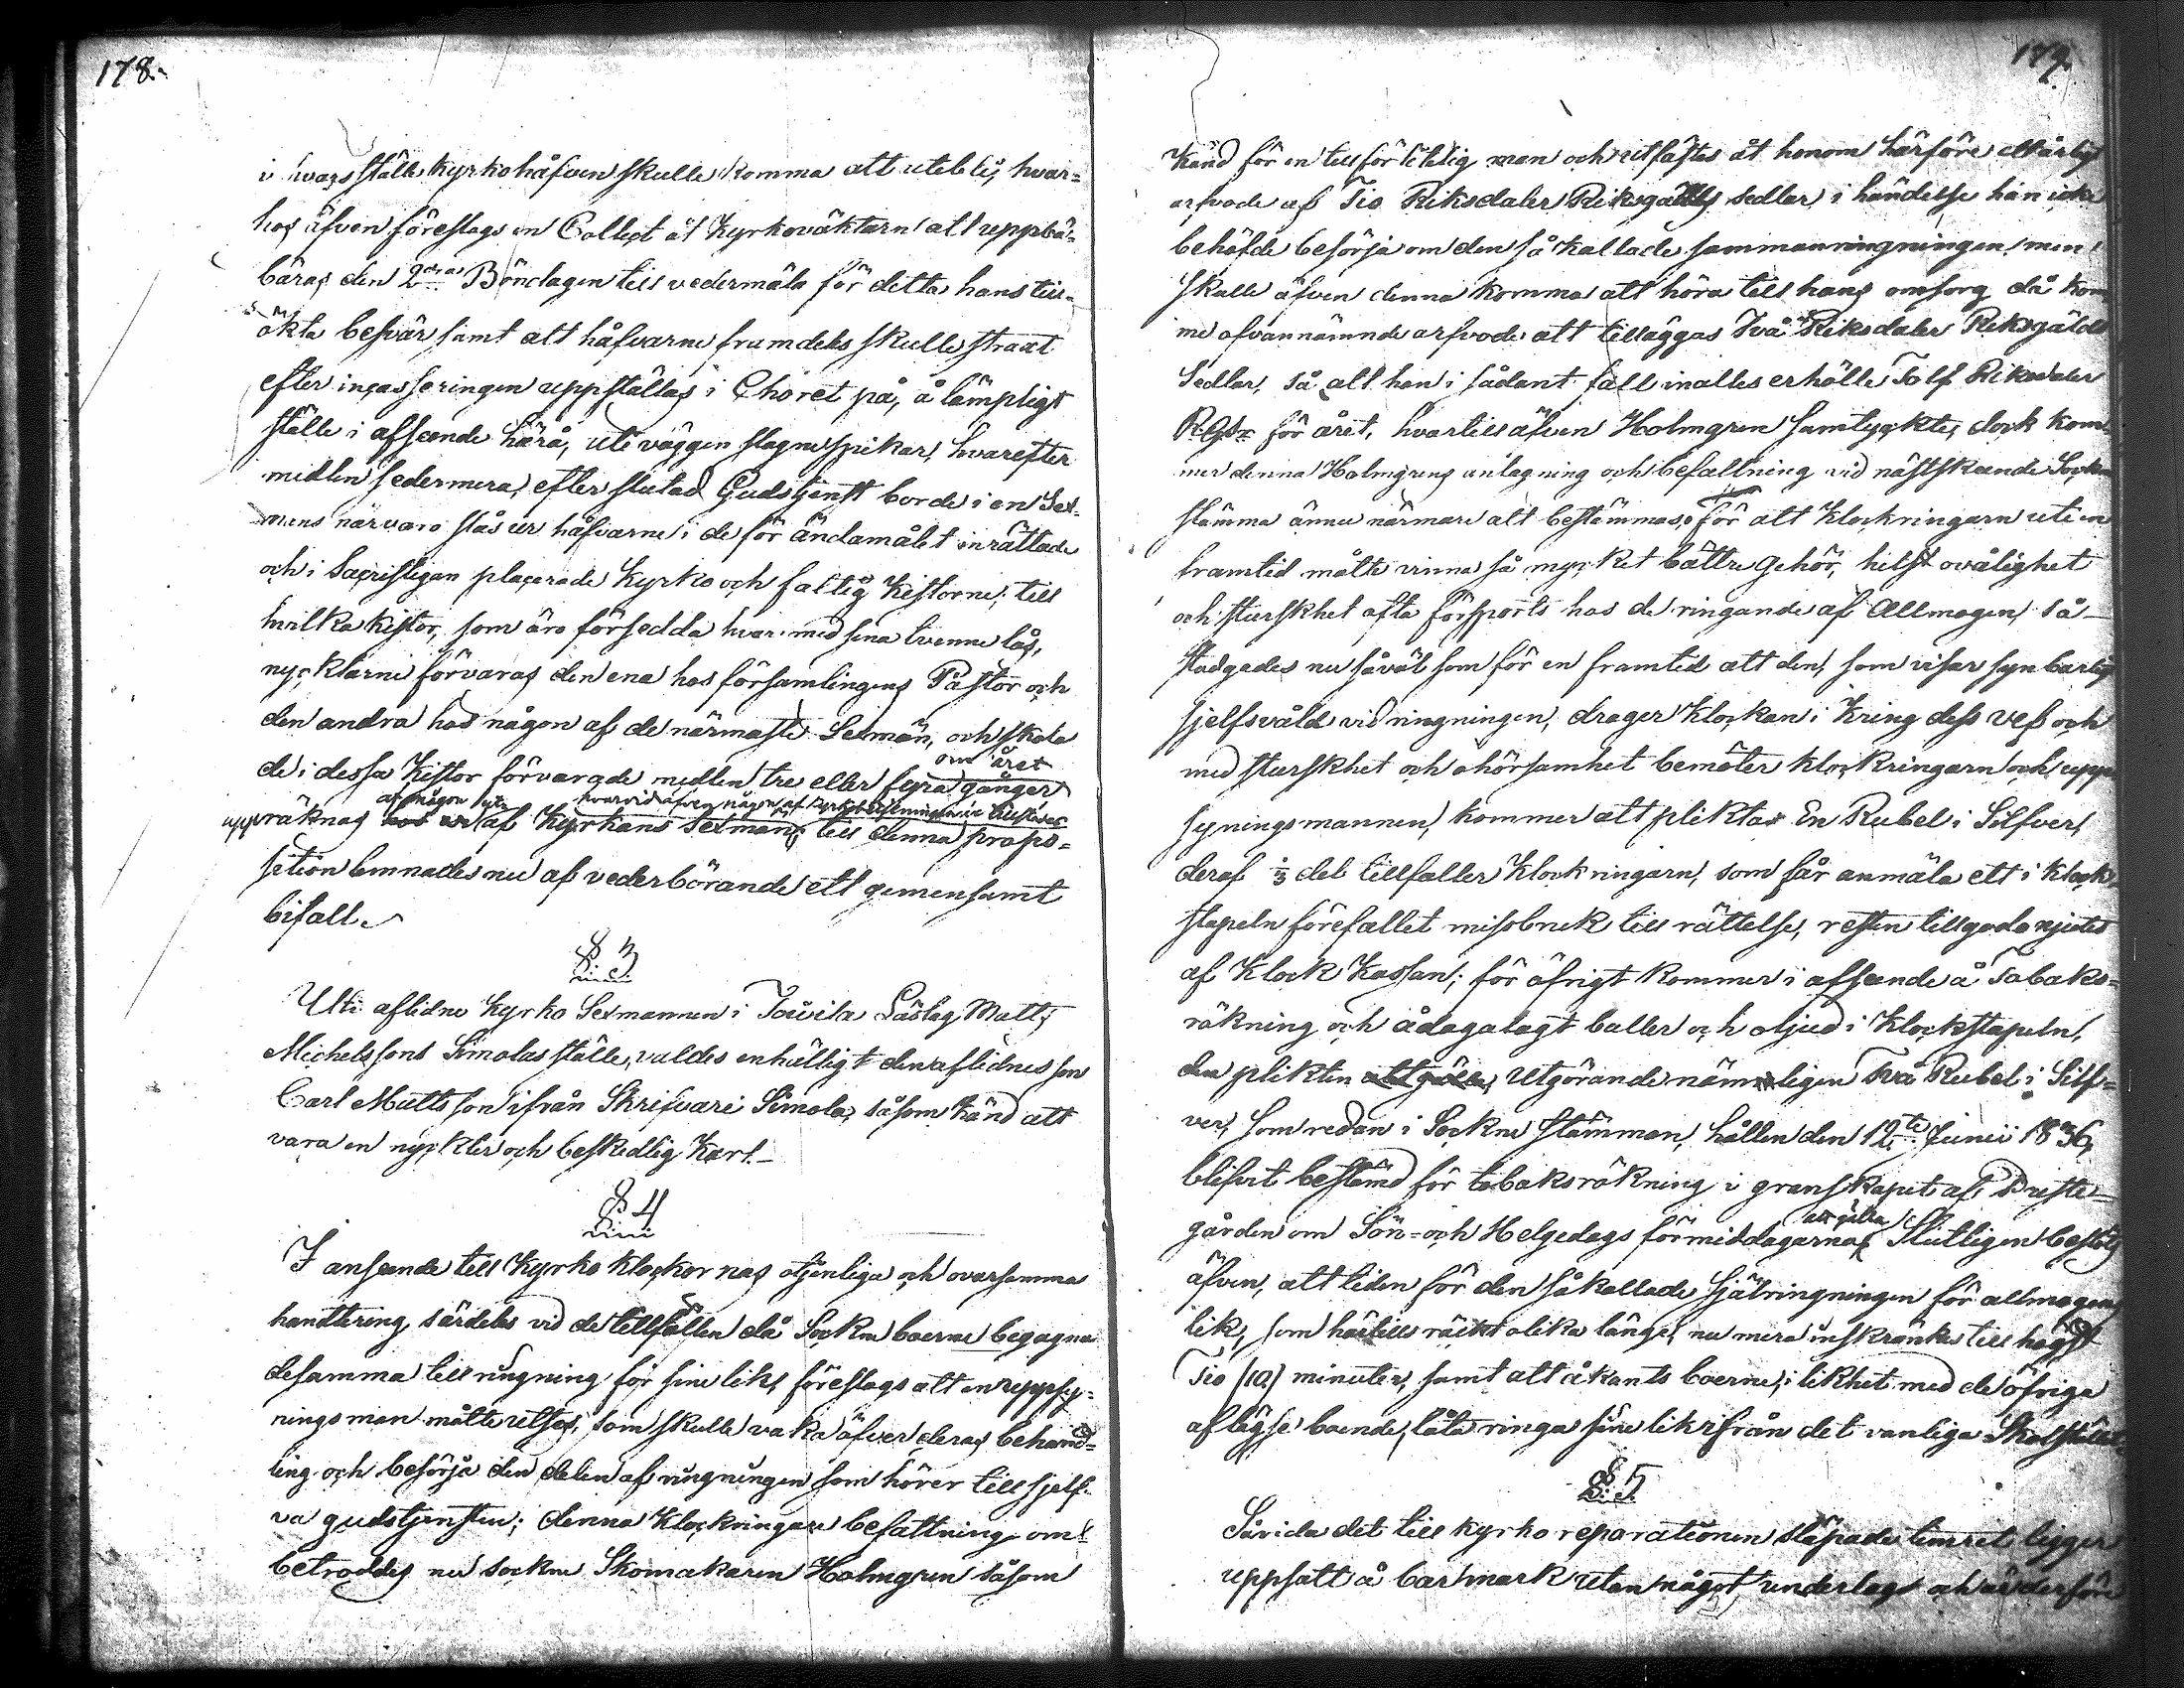 178.
i hvars ställe kyrkohåfven skulle komma att utebli, hvar-
hos äfven föreslogs en Collect åt Kyrkoväktarn att uppbä-
bäras den 2dra Böndagen till vedermäle för detta hans till-
ökta besvär samt att håfvarne framdeles skulle straxt
efter incasseringen uppställas i Choret på, å lämpligt
ställe i afseende härå, uti väggen slagne spikar, hvarefter
medlen sedermera, efter slutad Gudstjenst borde i en Sex-
mans närvaro slås ur håfvarne i de för ändamålet inrättade
och i Sacristigan placerade Kyrko och fattig Kistorne; till
hvilka kistor, som äro försedda hvar med sina tvenne lås,
nycklarne förvaras den ena hos församlingens Pastor och
den andra hos någon af de närmaste Sexmän, och skola
de i dessa Kistor förvarade medlen tre eller fyra gånger om året
uppräknas af någon af Kyrkans Sexman; till denna propo-
sition lemnades nu af vederbörande ett gemensamt
bifall.
§ 3
Uti aflidne Kyrko Sexmannen i Läslag Matts
Michelssons Simolas ställe, valdes enhälligt den aflidnes son
Carl Mattsson ifrån Skrifvari Simola, såsom känd att
vara en nyckter och beskedlig Karl.
§ 4
I anseende till Kyrko klockornas otjenliga och ovarsamma
handtering särdeles vid de tillfällen då Sockne boerne begagna
desamma till ringning för sine lik, föreslogs att en uppsy-
ningsman måtte utses, som skulle vaka öfver deras behand-
ling och besörja den delen af ringningen som hörer till sjelf-
va gudstjensten; denna Klockringare befattning om-
betroddes nu sockne Skomakaren Holmgren såsom
179.
Känd för en tillförlitelig man och utfästes åt honom härföre ett årligt
arfvode af Tio Riksdaler Riksgälds sedlar i händelse han icke
behöfde besörja om den så kallade sammanringningen, men
skulle äfven denna komma att höra till hans omsorg då kom-
me ofvannämnde arfvode att tilläggas Två Riksdaler Riksgälds
Sedlar, så att han i sådant fall inalles erhölle Tolf Riksdaler
RGs. för året, hvartill äfven Holmgren samtyckte, dock kom-
mer denna Holmgrens antagning och befattning vid nästskeende Sockne
stämma ännu närmare att bestämmas. För att Klockringarn uti en
framtid måtte vinna så mycket bättre gehör, helst ovålighet
och sturskhet ofta försports hos de ringande af Allmogen, så
stadgades nu såväl som för en framtid att den, som visar synbarligt
sjelfsvåld vid ringningen, drager Klockan i kring dess vef och
med sturskhet och ohörsamhet bemöter klockringarn och upp-
syningsmannen, kommer att plikta En Rubel i Silfver,
deraf 1/3 del tillfaller Klockringarn, som får anmäla ett i Klock-
stapeln förefallet missbruk till rättelse, resten tillgodo njutes
af Klock Kassan; för öfrigt kommer i afseende å Tobaks-
rökning och ådagalagt buller och oljud i Klockstapeln,
den plikten Utgörande nämligen Två Rubel i Silf-
ver, som redan i Sockne Stämman, hållen den 12te Junii 1836,
blifvit bestämd för tobaksrökning i granskapet af Preste-
gården om Sön- och Helgedags förmiddagarna att gälla. Slutligen beslöts
äfven, att tiden för den så kallade Själringningen för allmogens
lik, som härtills räckt olika länge, nu mera inskränkes till högst
Tio (10) minuter, samt att åkants boerne, i likhet med de öfriga
aflägse boende, låta ringa sine lik ifrån det vanliga
§ 5
Såvida det till kyrko reparationen släpade timret ligger
uppsatt å bar mark utan något underlag och är derföre